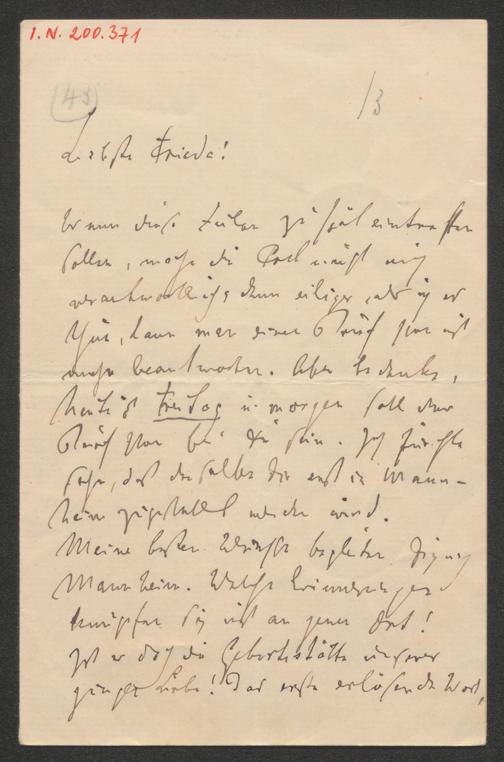 I.N. 200.371
(43)
13
Liebste Frieda!
Wenn diese Zeilen zu spät eintreffen
sollen, mache die Post nicht mich
verantwortlich, denn eiliger, als ich es
thue, kann man einen Brief schon nicht
mehr beantworten. Aber bedenke,
heut ist Freitag u. morgen soll der
Brief schon bei Dir sein. Ich fürchte
sehr, daß derselbe Dir erst in Mann-
heim zugestellt werden wird.
Meine besten Wünsche begleiten Dich nach
Mannheim. Welche Erinnerungen
knüpfen sich nicht an jenen Ort!
Ist er doch die Geburtsstätte unserer
jungen Liebe! Das erste erlösende Wort,